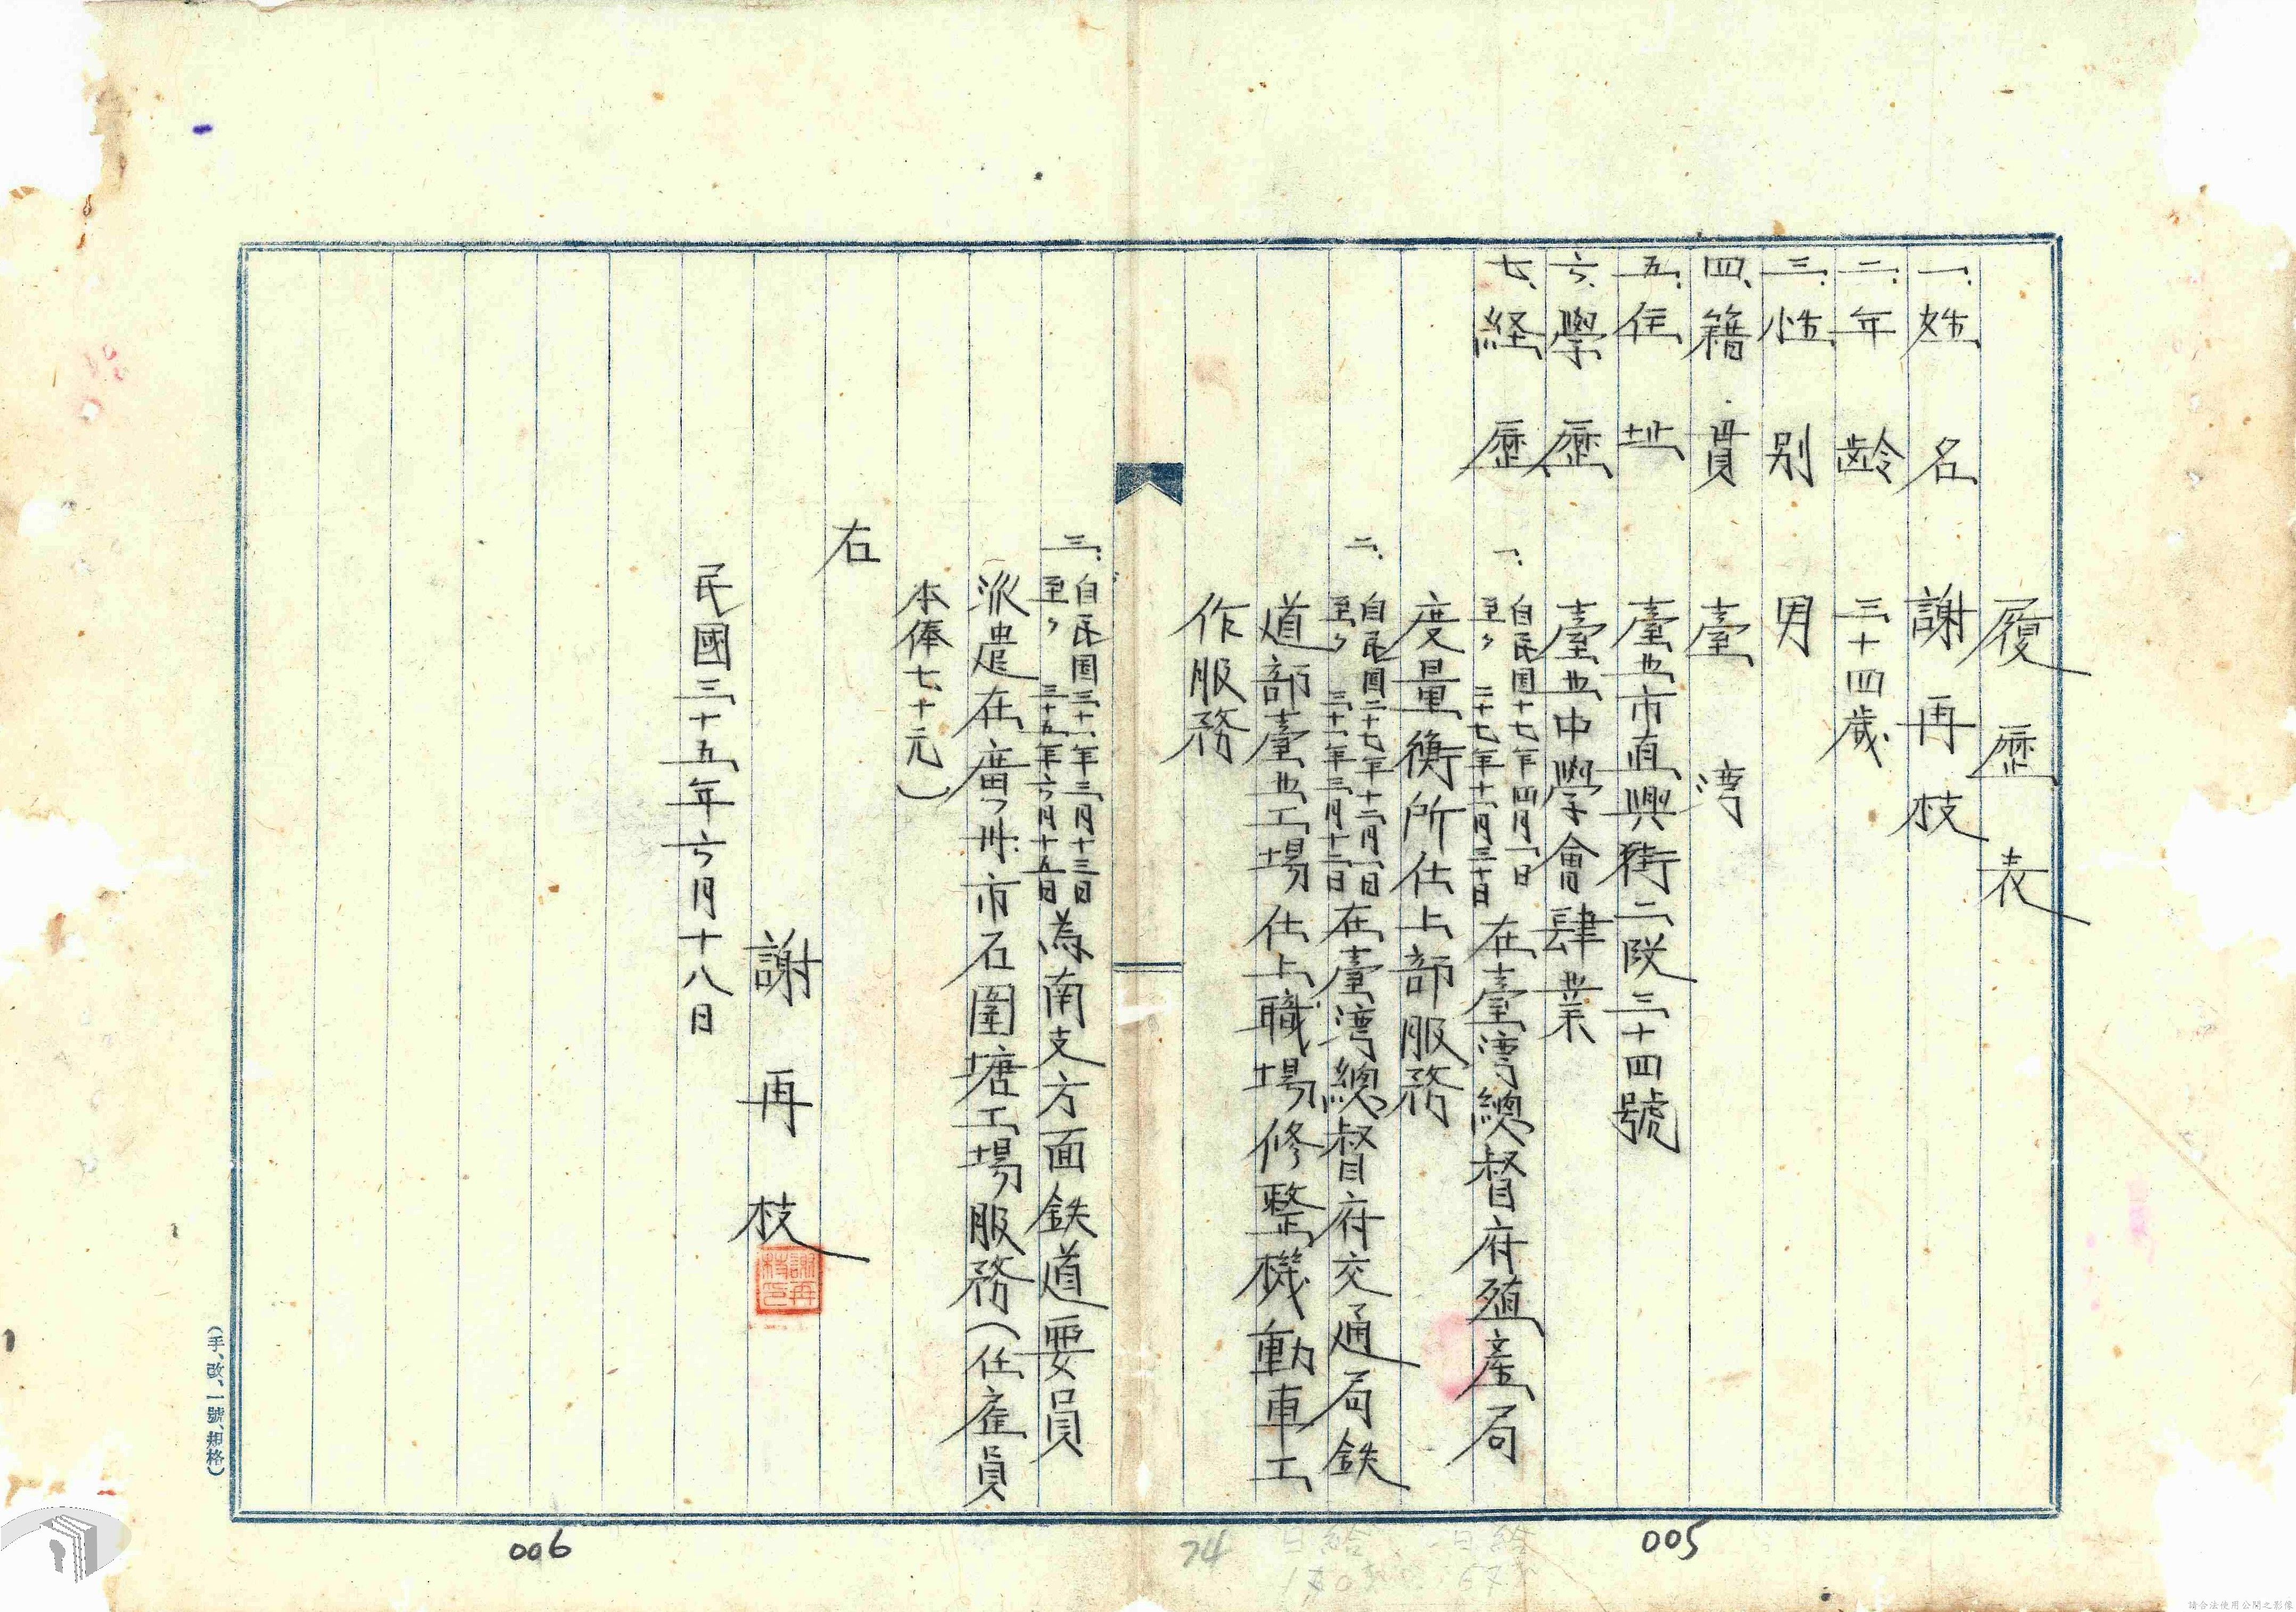 履歷表
一、姓名 謝再枝
二、年齡 三十四歲
三、性別 男
四、籍貫 臺湾
五、住址 臺北市直興街二段三十四號
六、學歷 臺北中學會肆業
七、経歷 一、自民国十七年四月一日
至〃 二十七年十一月三十日 在臺湾總督府殖產局
度量衡所仕上部服務
二、自民国二十七年十二月一日
至〃 三十一年三月十二日 在臺湾總督府交通局鉄
道部臺北工場仕上職場修整機動車工
作服務
三、自民国三十一年三月十三日
至〃 三十五年六月十五日 為南支方面鉄道要員
派遣在廣州市石圍塘工場服務(任雇員
本俸七十元)
右
謝再枝
謝再枝印
民國三十五年六月十八日
(手、改、一號、規格)
006
74
日給 日給
005
請合法使用公開之影像